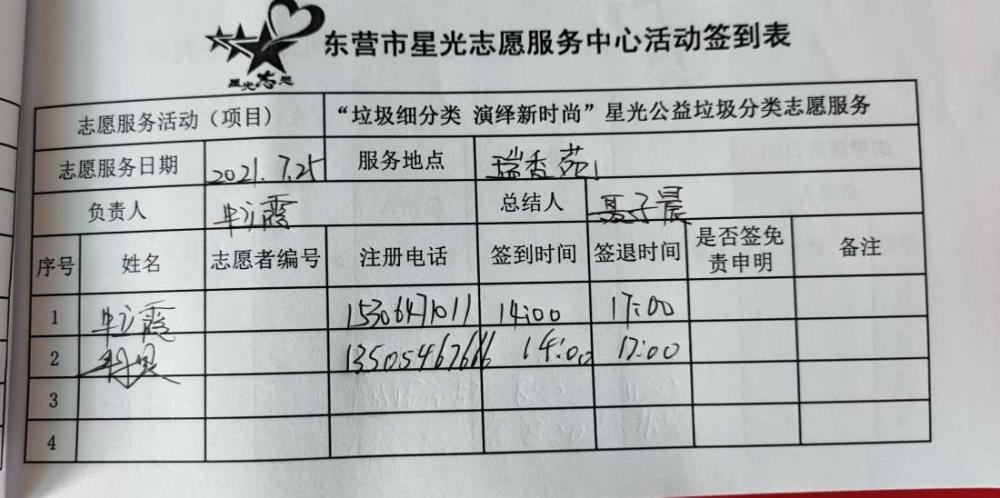 星光志愿
东营市星光志愿服务中心活动签到表
志愿服务活动（项目） “垃圾细分类 演绎新时尚”星光公益垃圾分类志愿服务
志愿服务日期 2021.7.25 服务地点 瑞香苑
负责人 牟立霞 总结人 子晨
序号 姓名 志愿者编号 注册电话 签到时间 签退时间 是否签免责申明 备注
1 牟立霞 15306471011 14:00 17:00
2 13505467666 14:00 17:00
3
4